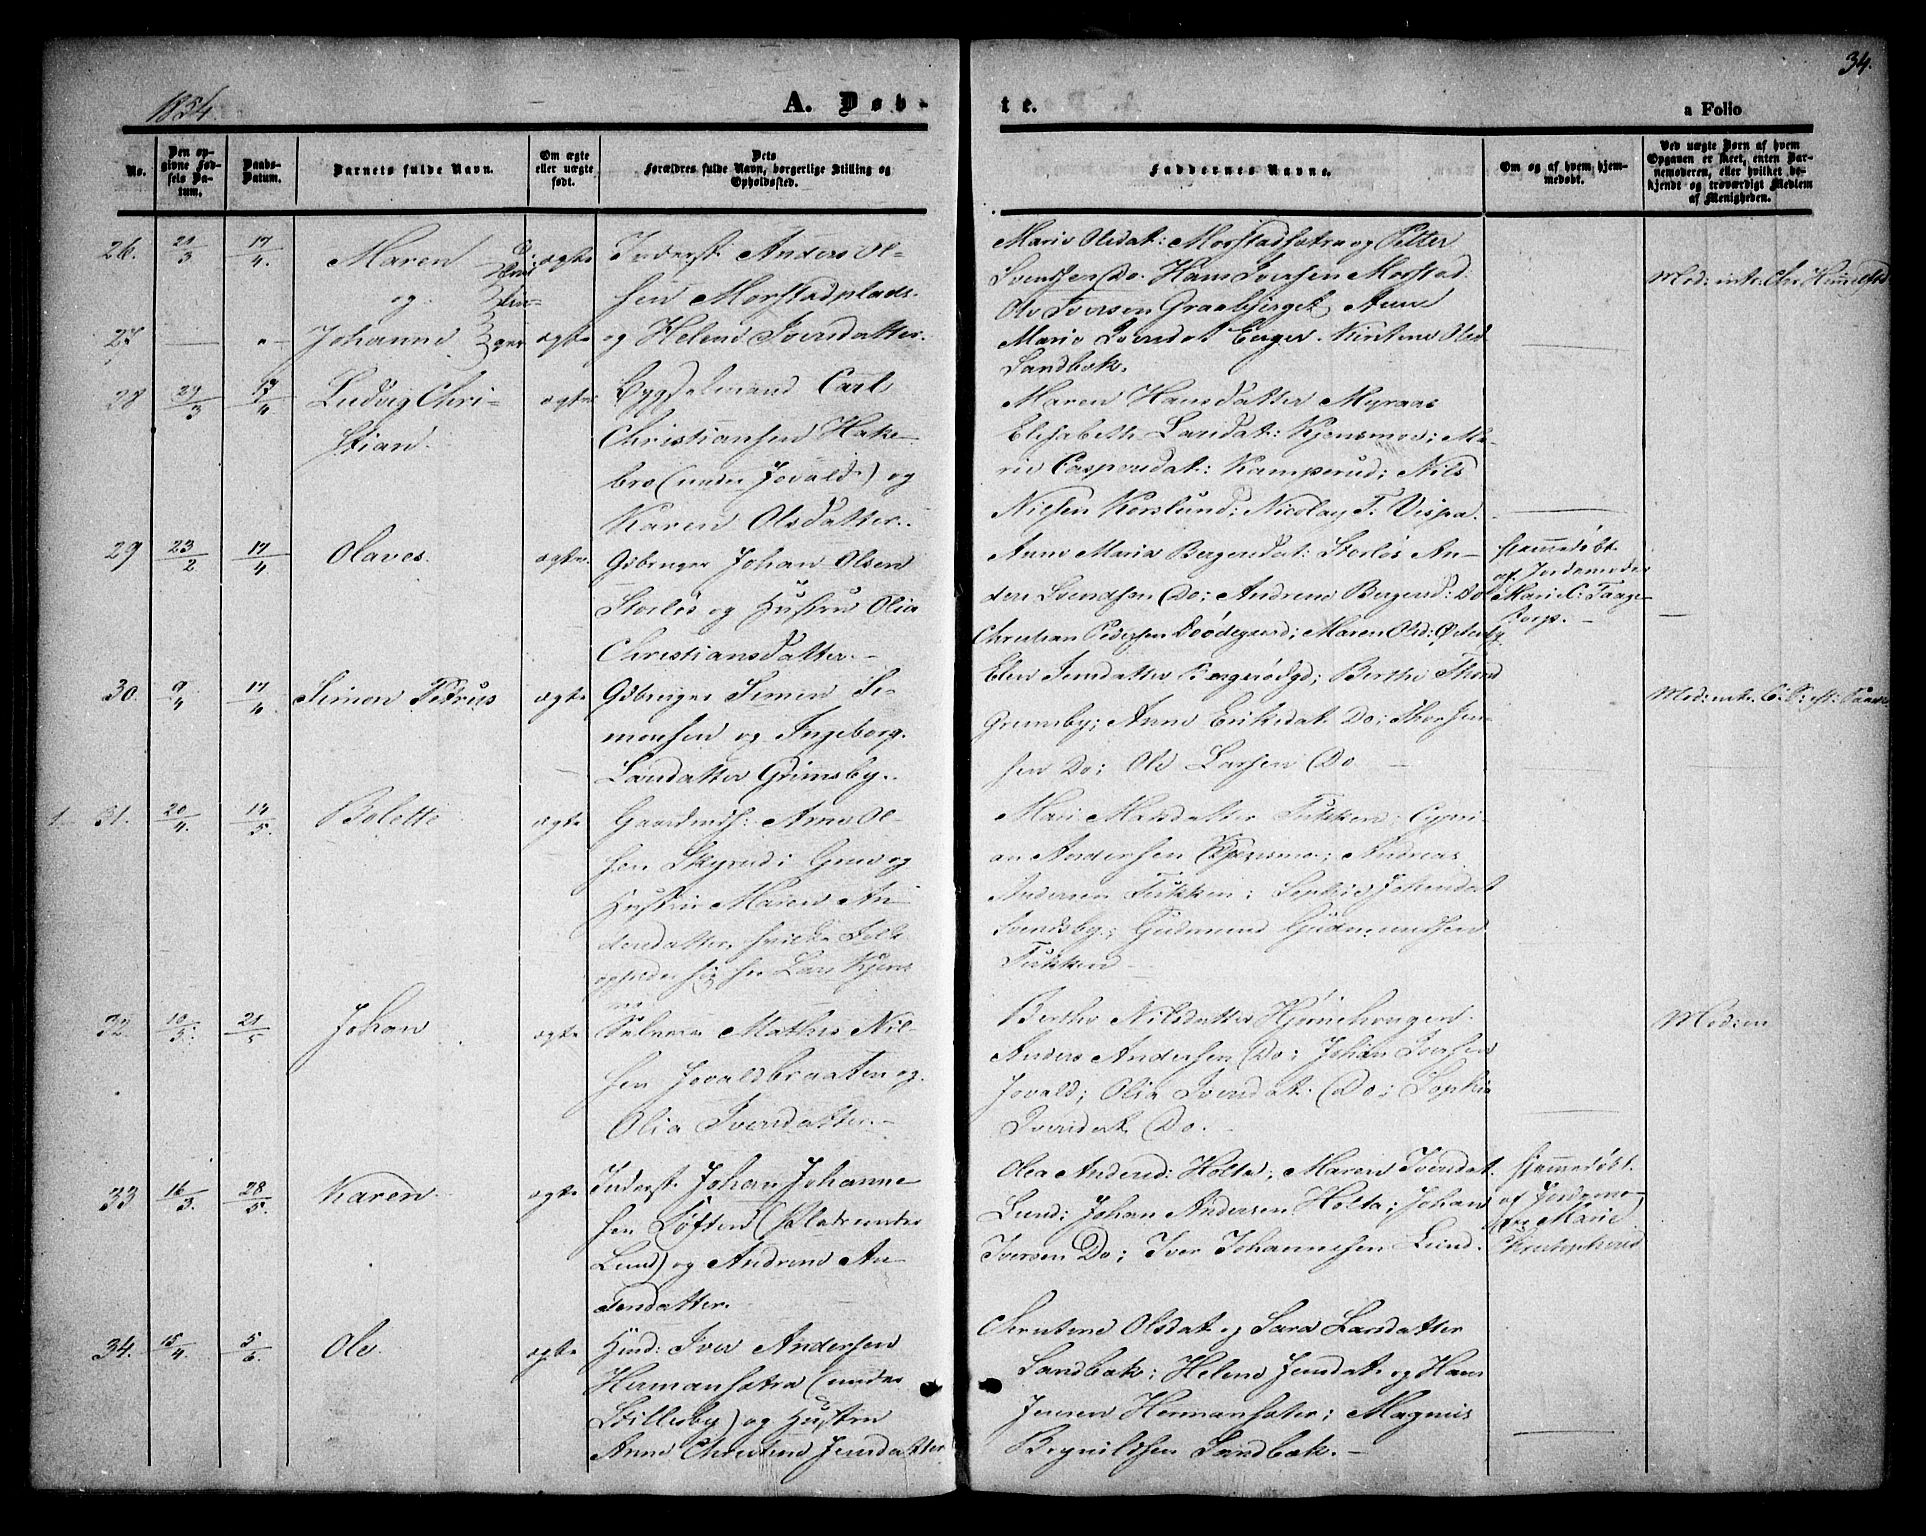 1854
A. Døb-
te.
34.
a Folio
No.
Den opgivne Fødsels Datum.
Daabs-Datum.
Barnets fulde Navn.
Om ægte eller uægte født.
Dets Forældres fulde Navn, borgerlige Stilling og Opholdssted.
Faddernes Navne.
Om og af hvem hjemmedøbt.
Ved uægte Børn af hvem Opgaven er skeet, enten Barnemoderen, eller hvilket bekjendt og troværdigt Medlem af Menigheden.
26. 21/3 17/4. Maren ægte Inderst: Anders Ol-
og
sen Morstadplads.
27. — „ Johanne ægte og Helene Iversdatter.
Marie Olsdat: Morstadsætra og Petter
Svendsen Do. Hans Iversen Morstad
Ole Iversen Graabjerget, Anne
Marie Iversdat Enger. Kirstine Olsd
Sandbæk.
28 29/3 17/4 Ludvig Chri-
stian.
ægte Bygselmand Carl
Christiansen Hake-
bro (under Jovald) og
Karen Olsdatter.
Maren Hansdatter Myraas
Elisabeth Larsdat: Kjensmoe; Ma-
rie Caspersdat: Kamperud; Nils
Nilsen Korslund; Nicolay T. Vispa.
29 23/2 17/4 Olaves ægte Gdbruger Johan Olsen
Storløs og Hustru Olia
Christiansdatter.
Anne Maria Bergersdat: Storløs An-
ders Svendsen Do; Andrine Bergersd: Do
Christian Pedersen Brødegaard; Maren Olsd: Østerby
Hjemmedøbt
af Jordemoder
Mari C. Taage-
torp.
30. 9/4 17/4 Simon Petrus ægte Gdbruger Simen Si-
mensen og Ingeborg
Larsdatter Grimsby.
Eline Jensdatter Bergerødgd; Berthe Thorsd
Grimsby; Anne Eriksdat Do; Thor Jen-
sen Do; Ole Larsen Do
1 31. 20/4. 14/5. Bolette ægte Gaardmds: Arne Ol-
sen Skyrud i Grue og
Hustru Maren An-
dersdatter, hvilke Folk
opholder sig hos Lars Kjens
mo
Mari Matsdatter Tukken; Cypri-
an Andersen Kjensmo; Andreas
Andersen Tukken; Sophie Johansdat
Svendsby; Gudmund Gudmundsen
Tukken
32 10/3. 21/5 Johan ægte Selveier Mathis Nil-
sen Jovaldbraaten og
Olia Iversdatter.
Berthe Nilsdatter
Anders Andersen Do; Johan Iversen
Jovald; Olia Iversdat. Do; Sophie
Iversdat Do.
Moderen
33 16/3. 28/5. Karen ægte Inderst. Johan Johanne-
sen Løften (Plads under
Lund) og Andrine An-
dersdatter.
Olea Andersd: Holte; Maren Iversdat
Lund; Johan Andersen Holta; Johan
Iversen Do; Iver Johannesen Lund.
Hjemmedøbt
af Jordemo-
der Marie
Christophersd
34. 15/4. 5/6. Ole ægte Husmd: Iver Andersen
Hermansætra (under
Stillesby) og Hustru
Anne Christine Jensdatter
Christine Olsdat og Sara Larsdatter
Sandbæk; Helene Jensdat og Hans
Jensen Hermansæter; Magnus
Brynildsen Sandbæk.